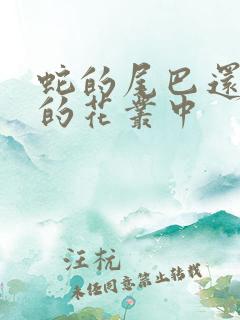 蛇的尾巴還
的花叢中
汪杬
未經同意禁止转载